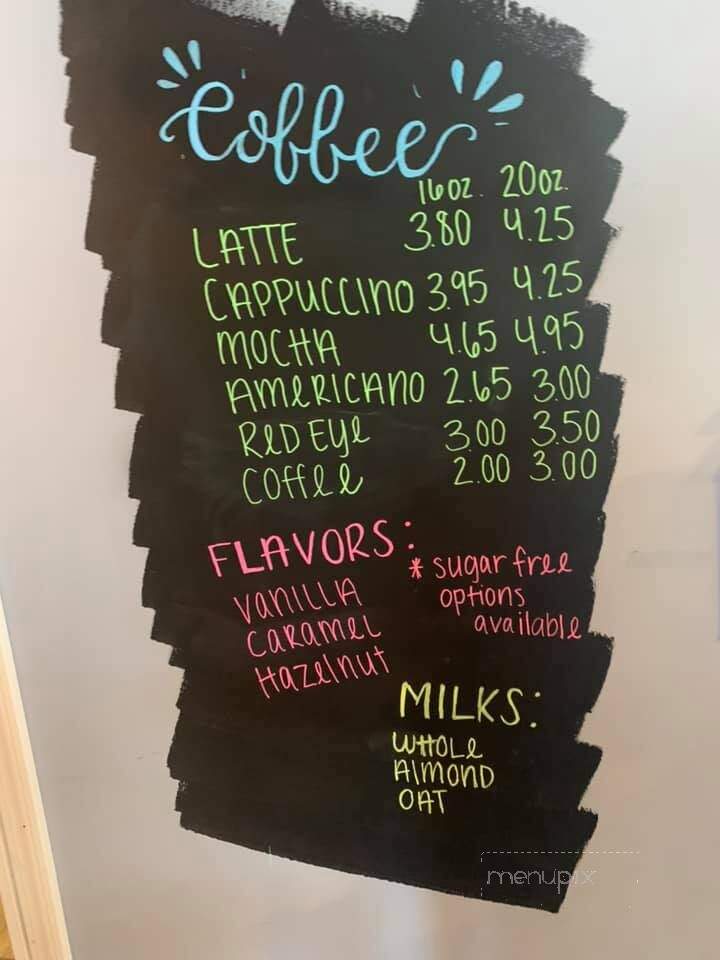 Coffee
16oz. 20oz.
LATTE 3.80 4.25
CAPPUCCINO 3.95 4.25
MOCHA 4.65 4.95
AMERICANO 2.65 3.00
RED EYE 3.00 3.50
COFFEE 2.00 3.00
FLAVORS:
VANILLA
CARAMEL
Hazelnut
* sugar free
options
available
MILKS:
WHOLE
AlMOND
OAT
menupix